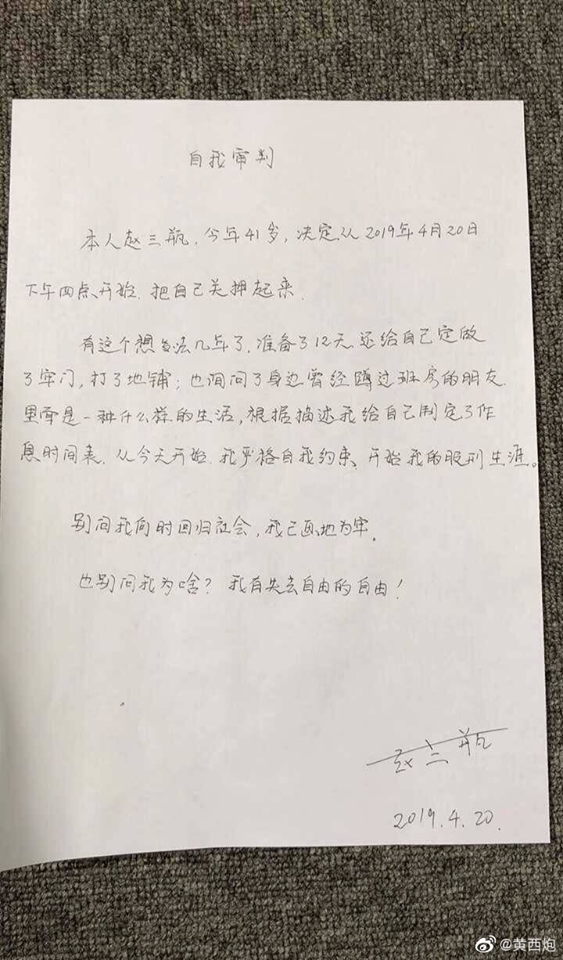 自我审判
本人赵三瓶,今年41岁,决定从2019年4月20日
下午四点开始.把自己关押起来.
有这个想法几年了.准备了12天.还给自己定做
了牢门,打了地铺;也询问了身边曾经蹲过班房的朋友.
里面是一种什么样的生活,根据描述我给自己制定了作
息时间表.从今天开始.我严格自我约束.开始我的服刑生涯。
别问我何时回归社会,我已画地为牢.
也别问我为啥?我有失去自由的自由!
赵三瓶
2019.4.20.
@黄西炮